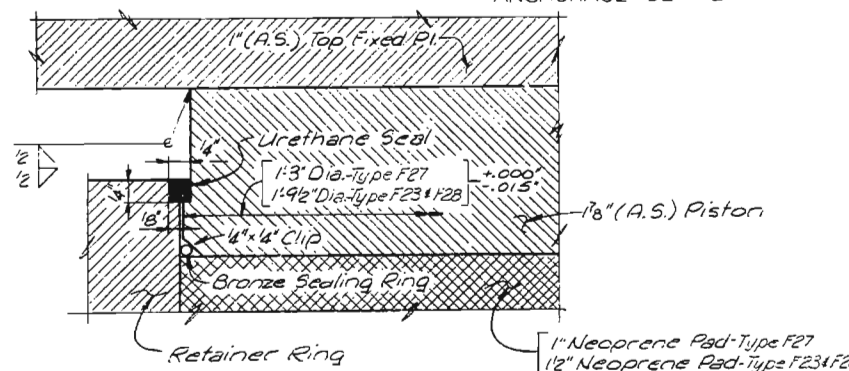 1"(A.S.) Top Fixed Pl.
Urethane Seal
1/4"
1/2
1/2
1/4"
1/8"
1'-3" Dia.-Type F27
1'-9 1/2" Dia-Type F23 & F28
+.000"
-.015"
1 7/8" (A.S.) Piston
1/4" x 1/4" Clip
Bronze Sealing Ring
Retainer Ring
1" Neoprene Pad-Type F27
1 1/2" Neoprene Pad-Type F23 & F2